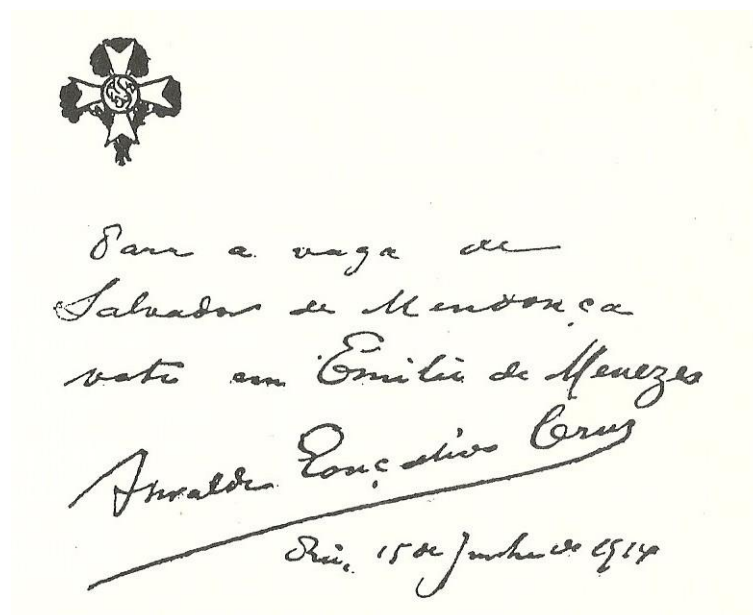 Para a vaga de
Salvador de Mendonça
voto em Emilio de Menezes
Oswaldo Gonçalves Cruz
Rio, 15 de Junho de 1914